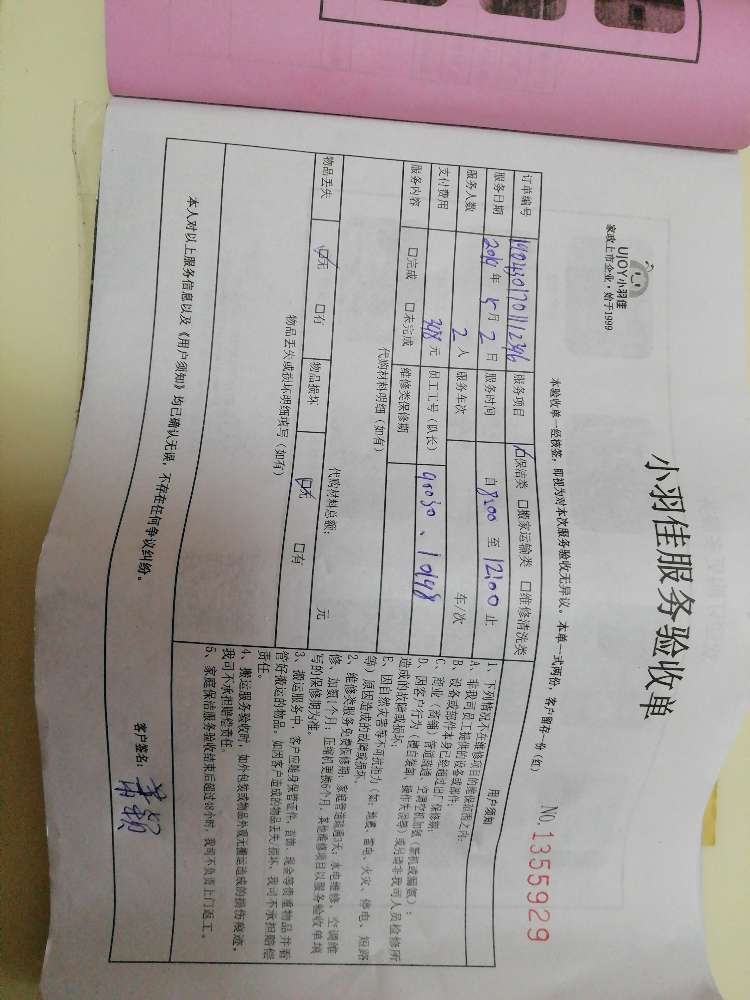 UJOY小羽佳
家政上市企业·始于1999
小羽佳服务验收单
NO. 1355929
本验收单一经核签，即视为对本次服务验收无异议。本单一式两份，客户留存一份（红）
订单编号 服务项目 保洁类 □搬家运输类 □维修清洗类
服务日期 2019年5月2日 服务时间 自8:00至12:00止
服务人数 2人 服务车次 车/次
支付费用 398元 员工工号（队长） 90030、10198
服务内容 □完成 □未完成 维修类保修期
代购材料明细（如有）
代购材料总额： 元
物品丢失 无 □有 物品损坏 无 □有
物品丢失或损坏明细填写（如有）
用户须知
1、下列情况不在维修项目的维保范围之内：
A、非我司员工提供的设备或部件；
B、设备或部件本身已经超过出厂保修期；
C、商业（商铺）管道疏通、空调空机加氨（新机或漏氨）；
D、因客户行为（擅自装卸、操作失误等）或另请非我司人员检修所
造成的故障或损坏；
E、因自然灾害等不可抗拒力（如：地震、雷击、火灾、停电、短路
等）原因造成的故障或损坏。
2、维修类服务免费保修期：家庭管道疏通7天；水电维修、空调维
修、加氨1个月；压缩机更换6个月；其他维修项目以服务验收单填
写的保修期为准。
3、搬运服务中，客户应随身保管证件、首饰、现金等贵重物品并看
管好搬运的物品。如因客户造成的物品丢失/损坏，我司不承担赔偿
责任。
4、搬运服务验收时，如外包装或物品外观无搬运造成的损伤痕迹，
我司不承担赔偿责任。
5、家庭保洁服务验收结束后超过48小时，我司不负责上门返工。
本人对以上服务信息以及《用户须知》均已确认无误，不存在任何争议纠纷。
客户签名：